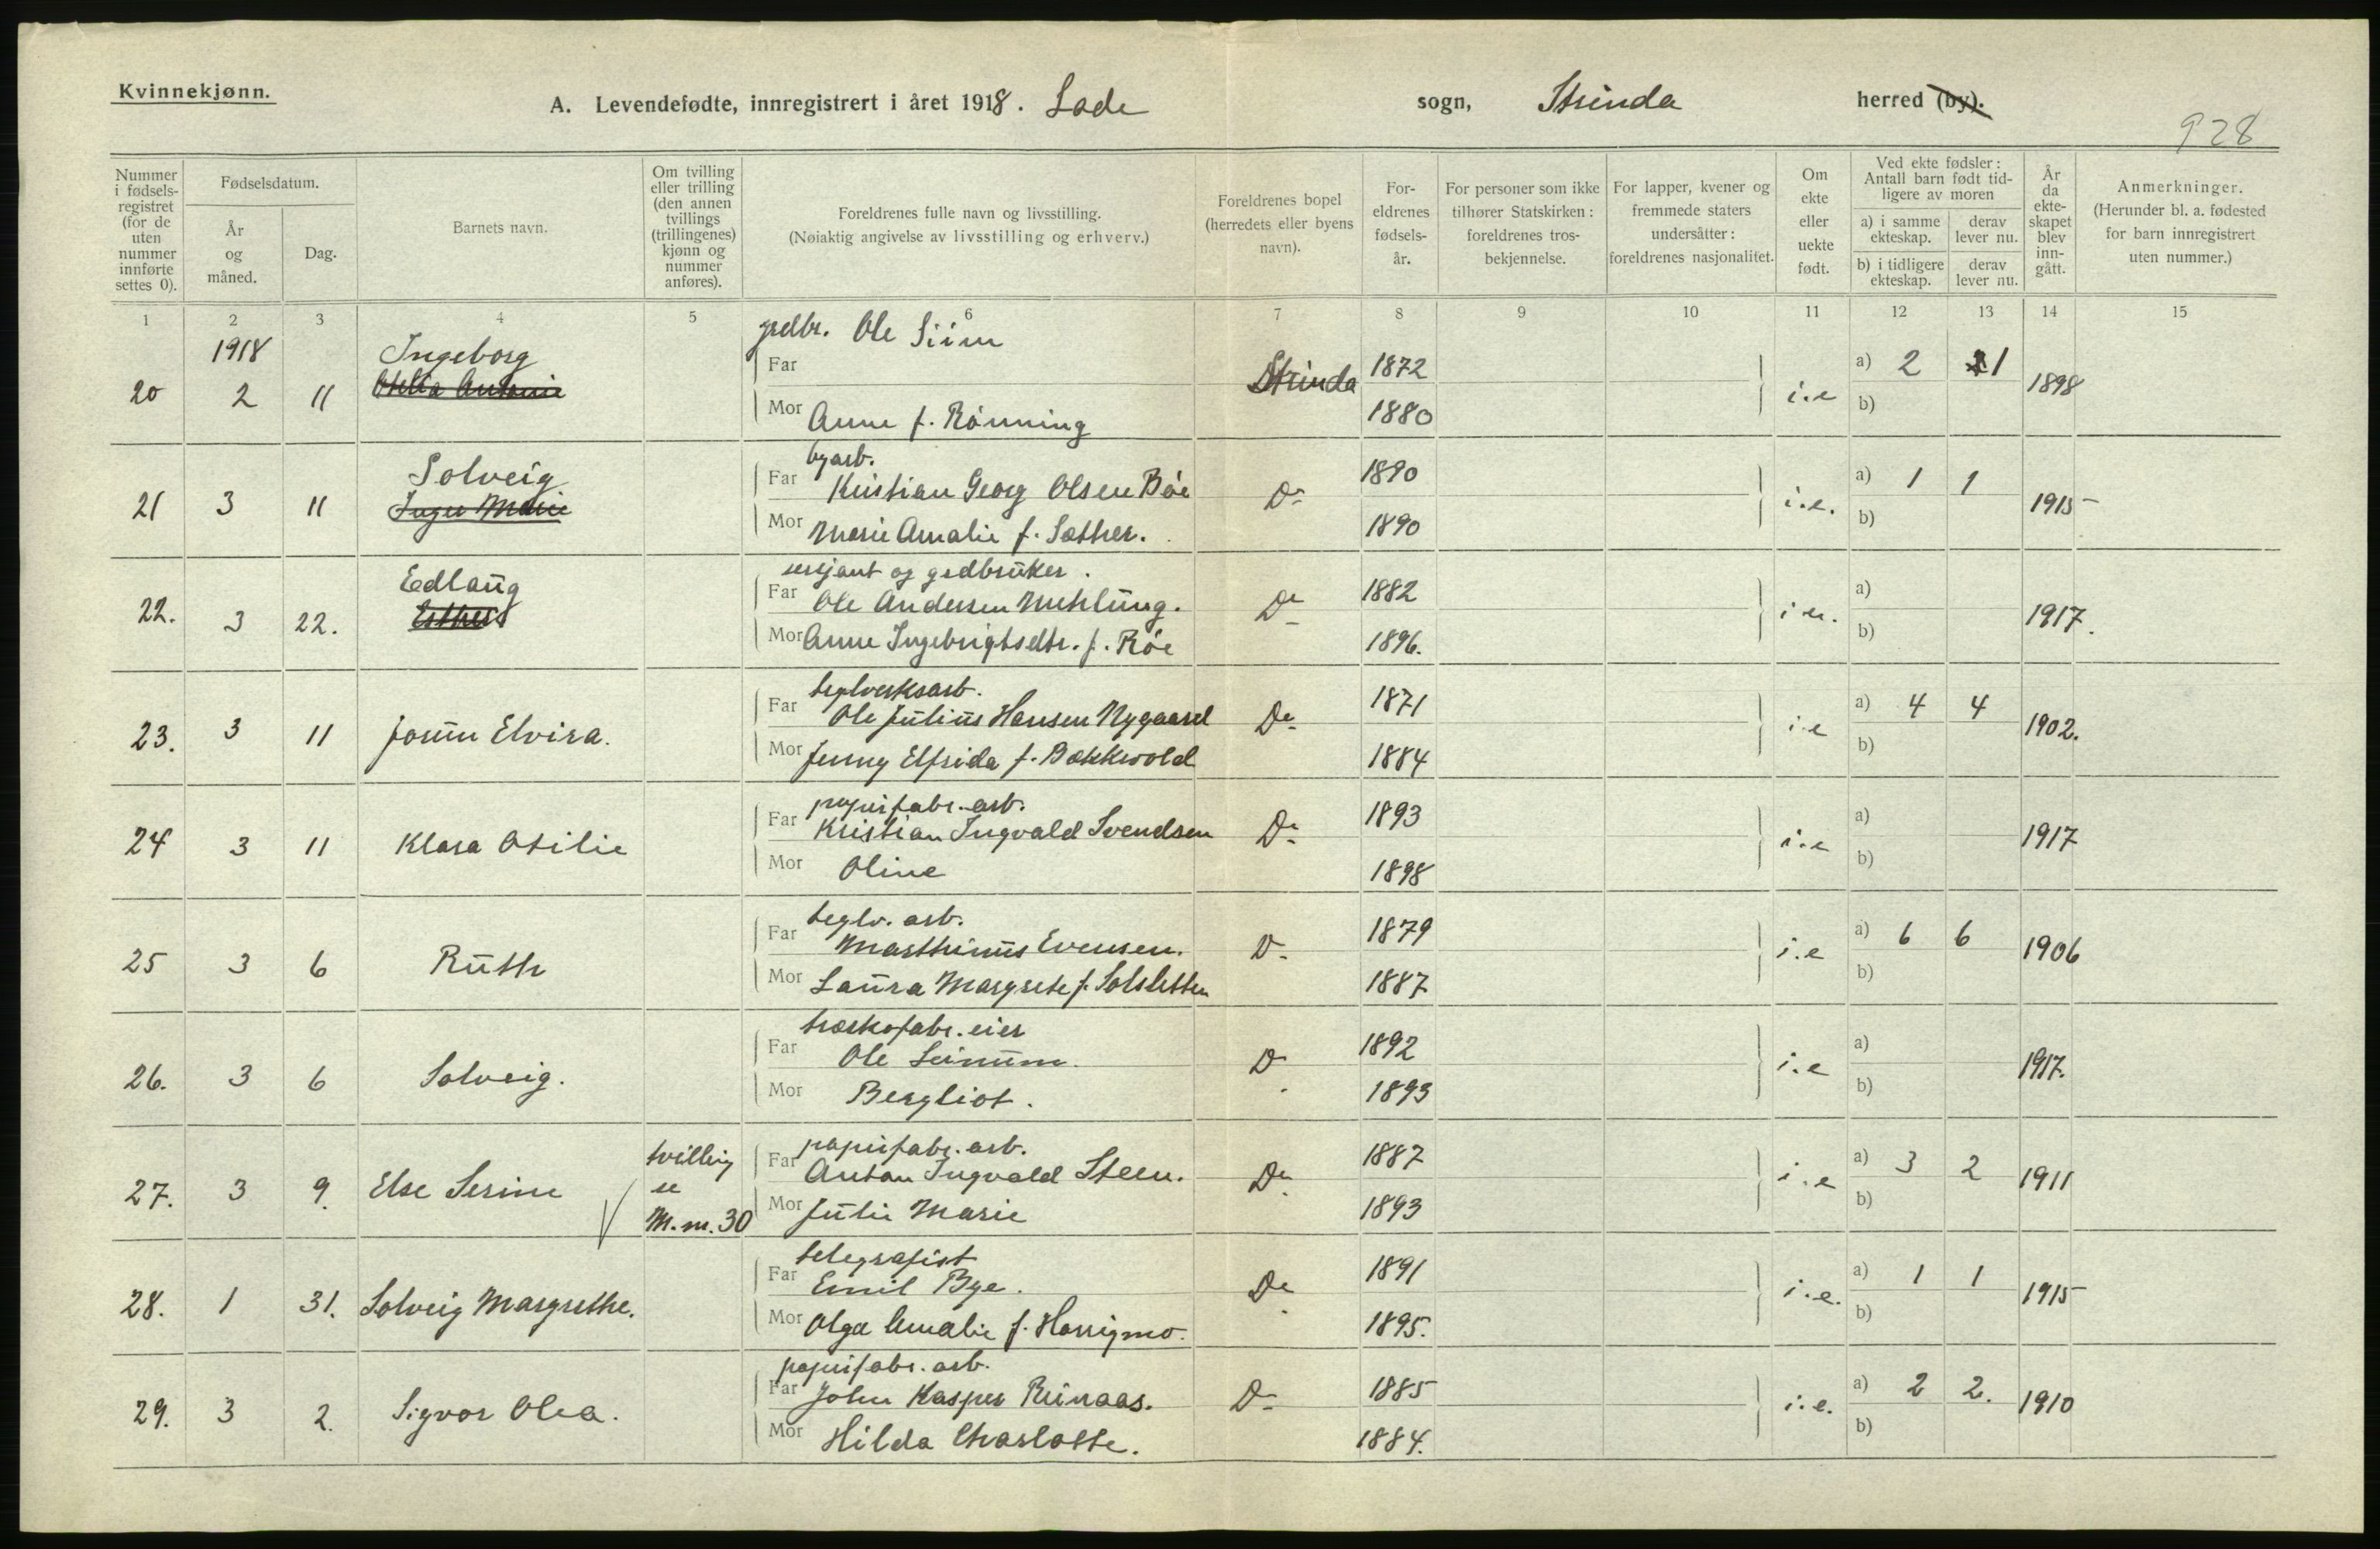 Kvinnekjønn.
A. Levendefødte, innregistrert i året 1918. Lade sogn, Strinda herred (by).
928
Nummer i fødsels-registret (for de uten nummer innførte settes 0).
Fødselsdatum.
År og måned.
Dag.
Barnets navn.
Om tvilling eller trilling (den annen tvillings (trillingenes) kjønn og nummer anføres).
Foreldrenes fulle navn og livsstilling.
(Nøiaktig angivelse av livsstilling og erhverv.)
Foreldrenes bopel (herredets eller byens navn).
For-eldrenes fødsels-år.
For personer som ikke tilhører Statskirken: foreldrenes tros-bekjennelse.
For lapper, kvener og fremmede staters undersåtter: foreldrenes nasjonalitet.
Om ekte eller uekte født.
Ved ekte fødsler: Antall barn født tid-ligere av moren
a) i samme ekteskap.
derav lever nu.
b) i tidligere ekteskap.
derav lever nu.
År da ekte-skapet blev inn-gått.
Anmerkninger.
(Herunder bl. a. fødested for barn innregistrert uten nummer.)
1 2 3 4 5 6 7 8 9 10 11 12 13 14 15
1918 Ingeborg grdbr. Ole Siim
20 2 11 Otelia Antonie Far Strinda 1872 i.e a) 2 1 1898
Mor Anne f. Rønning 1880 b)
Solveig byarb.
21 3 11 Inger Marie Far Kristian Georg Olsen Bøe Do 1890 i.e. a) 1 1 1915
Mor Marie Amalie f. Sæther. 1890 b)
Edlaug sersjant og grdbruker.
22. 3 22. Esther Far Ole Andersen Mehlung. Do 1882 i.e. a) 1917.
Mor Anne Ingebrigtsdtr. f. Røe 1896. b)
teglverksarb.
23. 3 11 Jorun Elvira. Far Ole Julius Hansen Nygaard Do 1871 i.e a) 4 4 1902.
Mor Jenny Elfrida f. Bækkvold 1884 b)
papirfabr. arb.
24 3 11 Klara Otilie Far Kristian Ingvald Svendsen Do 1893 i.e a) 1917
Mor Oline 1898 b)
teglv. arb.
25 3 6 Ruth Far Marthinus Evensen. D 1879 i.e a) 6 6 1906
Mor Laura Margrete f. Solsletten 1887 b)
træskofabr. eier
26. 3 6 Solveig. Far Ole Leinum. D 1892 i.e a) 1917.
Mor Bergliot. 1893 b)
tvilling papirfabr. arb.
27. 3 9. Else Serine se Far Anton Ingvald Steen. Do 1887 i.e a) 3 2 1911
M. nr. 30 Mor Julie Marie 1893 b)
telegrafist
28. 1 31. Solveig Margrethe. Far Emil Bye. Do 1891 i.e. a) 1 1 1915
Mor Olga Amalie f. Hannigmo. 1895. b)
papirfabr. arb.
29. 3 2. Sigvor Olea. Far John Kasper Reinaas. D 1885 i.e. a) 2 2. 1910
Mor Hilda Charlotte. 1884. b)